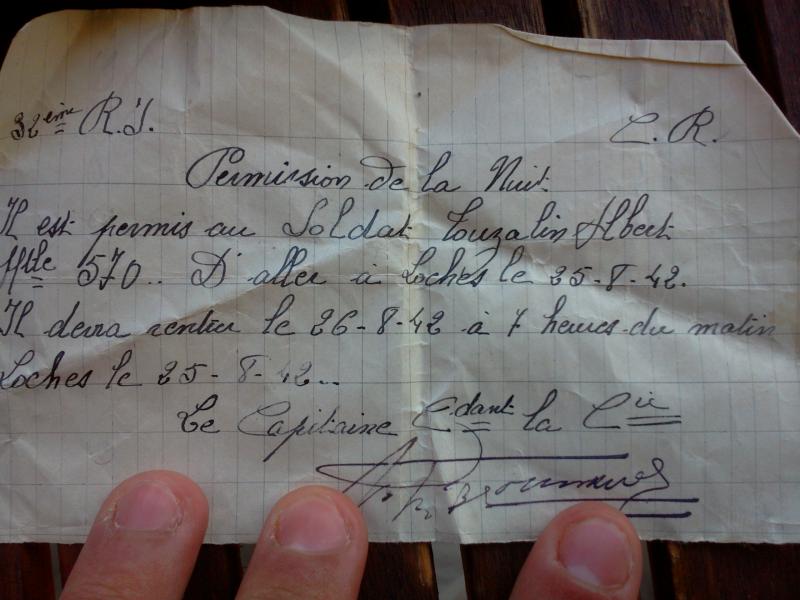 32ème R.I. C.R.
Permission de la Nuit
Il est permis au Soldat Touzalin Albert
Mle 570.. D'aller à Loches le 25-8-42.
Il devra rentrer le 26-8-42 à 7 heures du matin
Loches le 25-8-42...
Le Capitaine Cdant la Cie